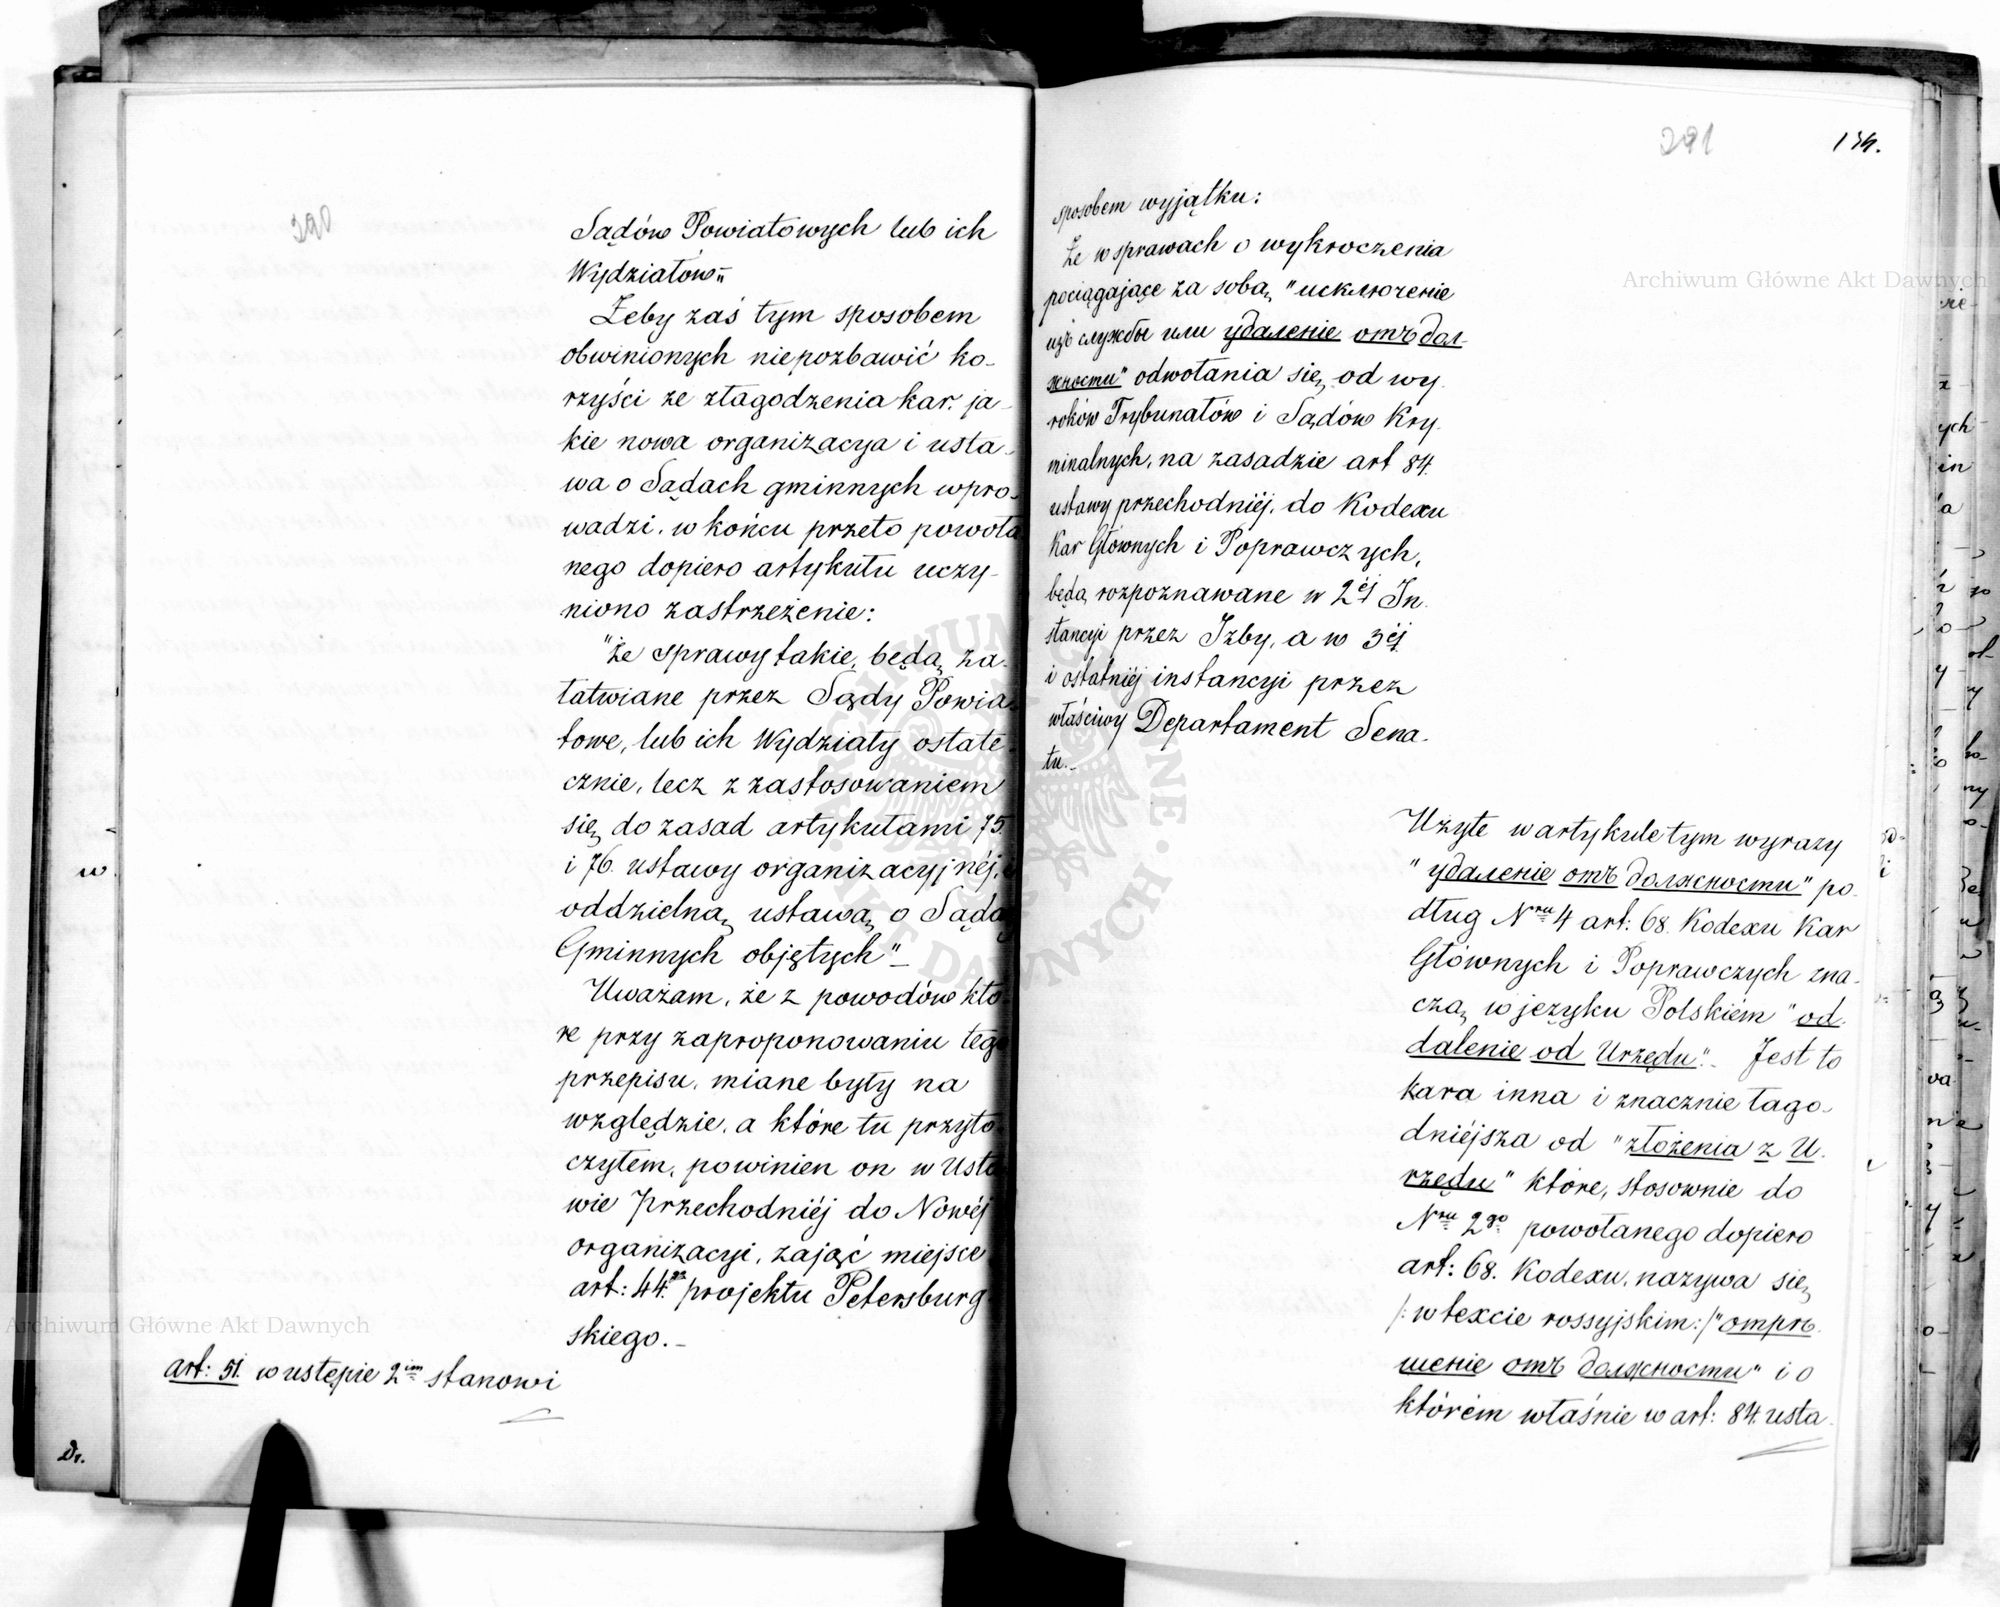 290
Sądów Powiatowych lub ich
Wydziałów"
Żeby zaś tym sposobem
obwinionych niepozbawić ko-
rzyści ze złagodzenia kar, ja-
kie nowa organizacya i usta-
wa o Sądach gminnych wpro-
wadzi, w końcu przeto powoła
nego dopiero artykułu uczy-
niono zastrzeżenie:
"że sprawy takie, będą za-
łatwiane przez Sądy Powia-
towe, lub ich Wydziały ostate-
cznie, lecz z zastosowaniem
się do zasad artykułami 75.
i 76. ustawy organizacyjnéj,
oddzielną ustawą o Sąda
Gminnych objętych"_
Uważam, że z powodów któ-
re przy zaproponowaniu tego
przepisu, miane były na
względzie, a które tu przyto-
czyłem, powinien on w Usta
wie Przechodniéj do Nowéj
organizacyi, zająć miejsce
art: 44go projektu Petersburg
skiego._
art: 51. w ustępie 2im stanowi
291
134.
sposobem wyjątku:
Że w sprawach o wykroczenia
pociągające za sobą "исключение
изъ службы или удаление отъ дол-
жности" odwołania się od wy-
roków Trybunałów i Sądów Kry-
minalnych, na zasadzie art 84.
ustawy przechodniéj, do Kodexu
Kar Głównych i Poprawczych,
będą rozpoznawane w 2éj In-
stancyi przez Izby, a w 3éj
i ostatniéj instancyi przez
właściwy Departament Sena-
tu._
Użyte w artykule tym wyrazy
"удаление отъ должности" po-
dług Nru 4 art: 68. Kodexu Kar
Głównych i Poprawczych zna-
czą w języku Polskiém "od-
dalenie od Urzędu"._ Jest to
kara inna i znacznie łago-
dniéjsza od "złożenia z U-
rzędu" które, stosownie do
Nru 2go powołanego dopiero
art: 68. Kodexu, nazywa się
/: w texcie rossyjskim:/ "отрѣ-
шение отъ должности" i o
którém właśnie w art: 84. usta-
Archiwum Główne Akt Dawnych
Archiwum Główne Akt Dawnych
ARCHIWUM GŁÓWNE AKT DAWNYCH